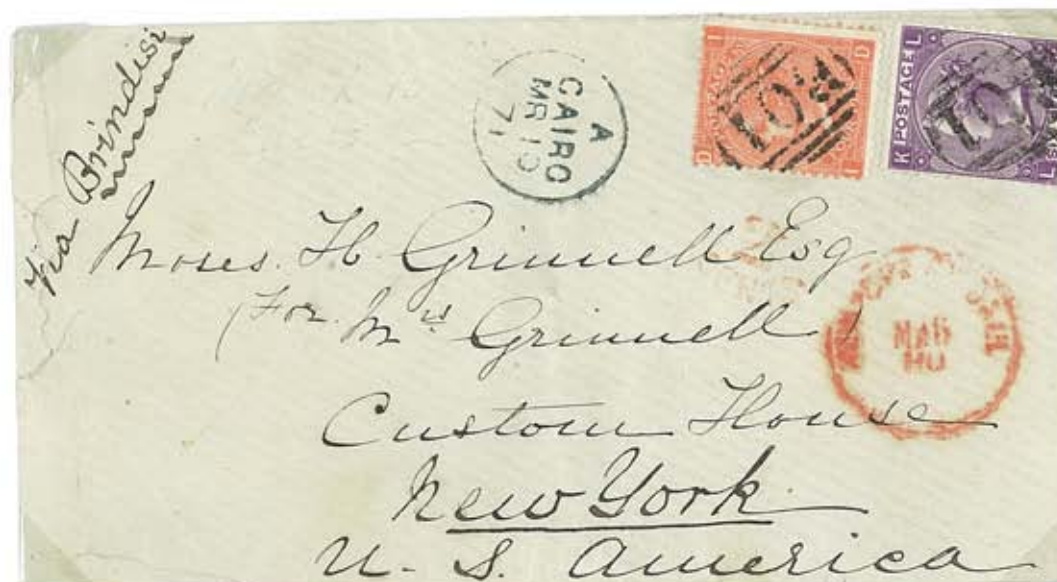 via Brindisi
A
CAIRO
MR 19
71
D I
D I
K POSTAGE L
L SIX
Moses. H. Grinnell Esq
(For Mrs Grinnell)
MAR
Custom House
New York.
U. S. America